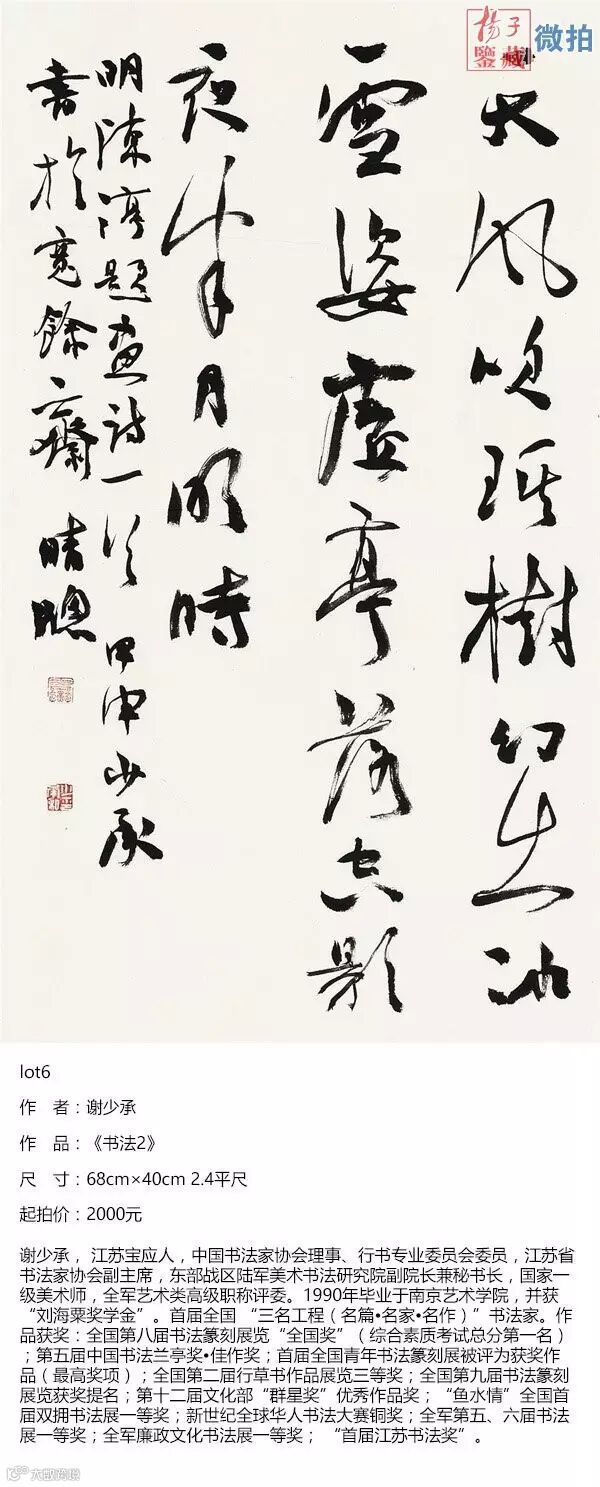 楊子
鑒藏
微拍
天風吹琪樹幻出冰
雪姿虛亭落空影
夜半月明時
明陳淳題畫詩一首 甲申少承
書於寬餘之齋晴牕
lot6
作 者：谢少承
作 品：《书法2》
尺 寸：68cm×40cm 2.4平尺
起拍价：2000元
谢少承， 江苏宝应人，中国书法家协会理事、行书专业委员会委员，江苏省
书法家协会副主席，东部战区陆军美术书法研究院副院长兼秘书长，国家一
级美术师，全军艺术类高级职称评委。1990年毕业于南京艺术学院，并获
“刘海粟奖学金”。首届全国 “三名工程（名篇•名家•名作）”书法家。作
品获奖：全国第八届书法篆刻展览“全国奖”（综合素质考试总分第一名）
；第五届中国书法兰亭奖•佳作奖；首届全国青年书法篆刻展被评为获奖作
品（最高奖项）；全国第二届行草书作品展览三等奖；全国第九届书法篆刻
展览获奖提名；第十二届文化部“群星奖”优秀作品奖；“鱼水情”全国首
届双拥书法展一等奖；新世纪全球华人书法大赛铜奖；全军第五、六届书法
展一等奖；全军廉政文化书法展一等奖； “首届江苏书法奖”。
大欧跨境